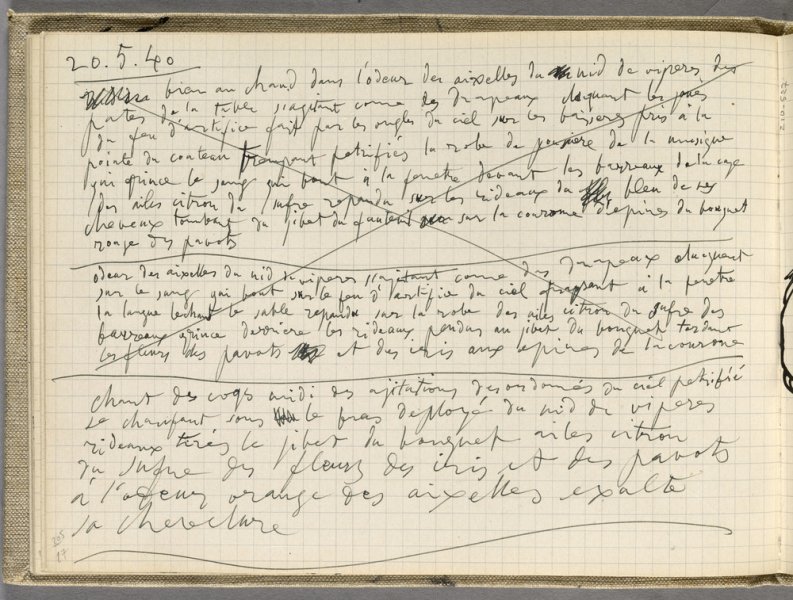 20.5.40
bien au chaud dans l'odeur des aixelles du nid de viperes des
pates de la table s'agitant come des drapeaux claquant les joues
du feu d'artifice fait par les ongles du ciel sur les baisers pris à la
pointe du couteau trempant petrifiés la robe de de la musique
qui grince le sang qui bout à la fenetre devant les barreaux de la cage
des ailes citron du sufre repandu sur les rideaux du bleu de ses
cheveux tombant du jibet du fauteuil sur la courone d'epines du bouquet
rouge des pavots
odeur des aixelles du nid de viperes s'agitant come des drapeaux claquant
sur le sang qui bout sur le feu d'artifice du ciel frapant à la fenetre
la langue lechant le sable repandu sur la robe des ailes citron du sufre des
barreaux grince derriere les rideaux pendus au jibet du bouquet tordant
les fleurs des pavots et des iris aux epines de la courone
chant des coqs midi des agitations desordonnés du ciel petrifié
se chaufant sous le bras deployé du nid de viperes
rideaux tirés le jibet du bouquet ailes citron
du sufre des fleurs des iris et des pavots
à l'odeur orange des aixelles exalte
sa chevelure
205
17
210-527